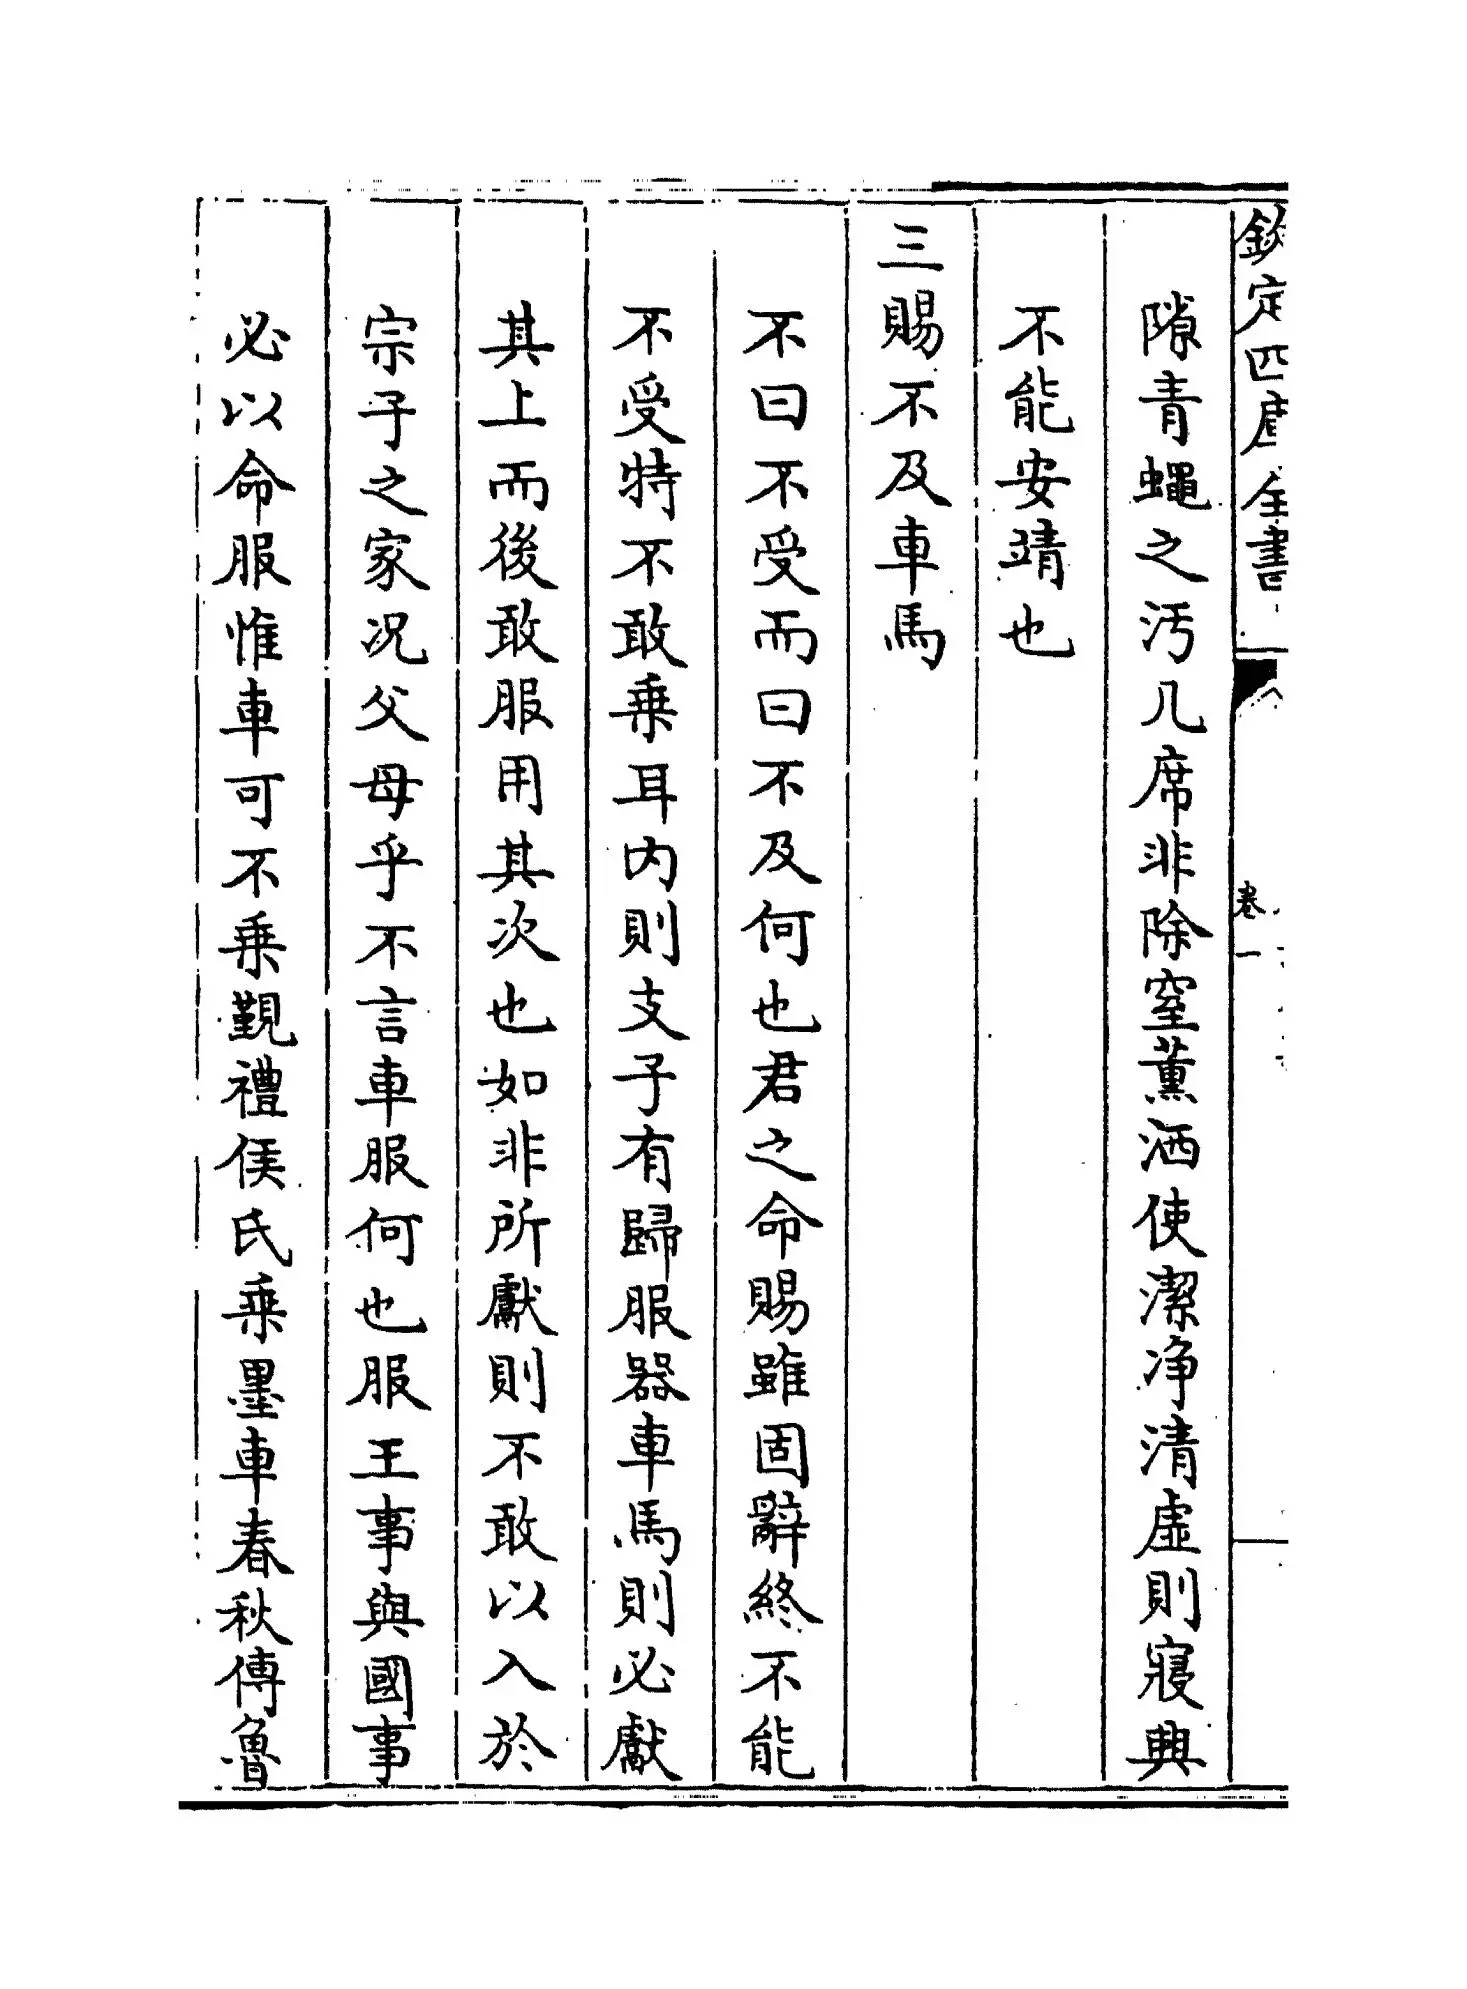 欽定四庫全書
卷一
隙青蠅之汚几席非除窒薰洒使潔净清虛則寢興
不能安靖也
三賜不及車馬
不曰不受而曰不及何也君之命賜雖固辭終不能
不受特不敢乗耳内則支子有歸服器車馬則必獻
其上而後敢服用其次也如非所獻則不敢以入於
宗子之家况父母乎不言車服何也服王事與國事
必以命服惟車可不乗覲禮侯氏乗墨車春秋傳魯